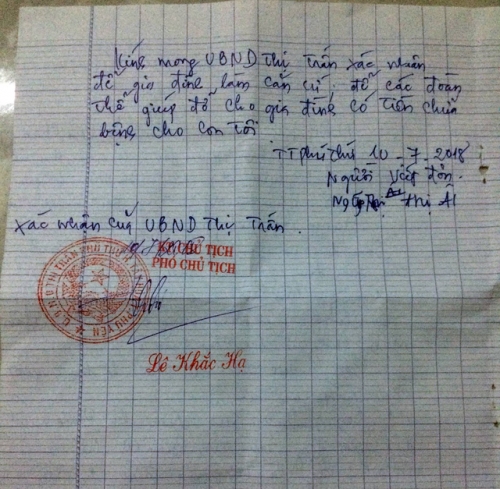 Kính mong UBND Thị Trấn xác nhân
để gia đình làm căn cứ, để các đoàn
thể giúp đỡ cho gia đình có tiền chữa
bệnh cho con tôi
TT phú thứ 10-7-2018
Người viết đơn.
Thị Ái
xác nhân của UBND Thị Trấn.
KT. CHỦ TỊCH
PHÓ CHỦ TỊCH
Lê Khắc Hạ